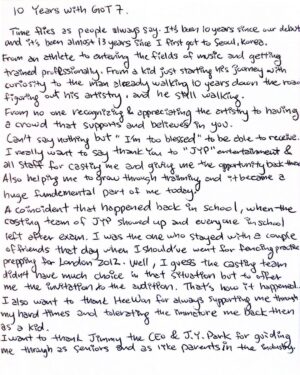 10 Years with GOT7.
Time flies as people always say. It's been 10 years since our debut
and it's been almost 13 years since I first got to Seoul, Korea.
From an athlete to entering the fields of music and getting
trained professionally. From a kid just starting his journey with
curiosity to the man already walking 10 years down the road
figuring out his artistry, and he still walking.
From no one recognizing & appreciating the artistry to having
a crowd that supports and believes in you.
Can't say nothing but "I'm too blessed" to be able to receive.
I really want to say thank you to "JYP" entertainment &
all staff for casting me and giving me the opportunity back then
Also helping me to grow through training and it became a
huge fundemental part of me today.
A coincident that happened back in school, when the
casting team of JYP showed up and everyone in school
left after exam. I was the one who stayed with a couple
of friends that day when I should've went for fencing practice
prepping for London 2012. Well, I guess the casting team
didn't have much choice in that situation but to offer
me the invitation to the audition. That's how it happened.
I also want to thank HeeWon for always supporting me through
my hard times and tolerating the immature me back then
as a kid.
I want to thank Jimmy the CEO & J.Y. Park for guiding
me through as seniors and as like parents in the industry.